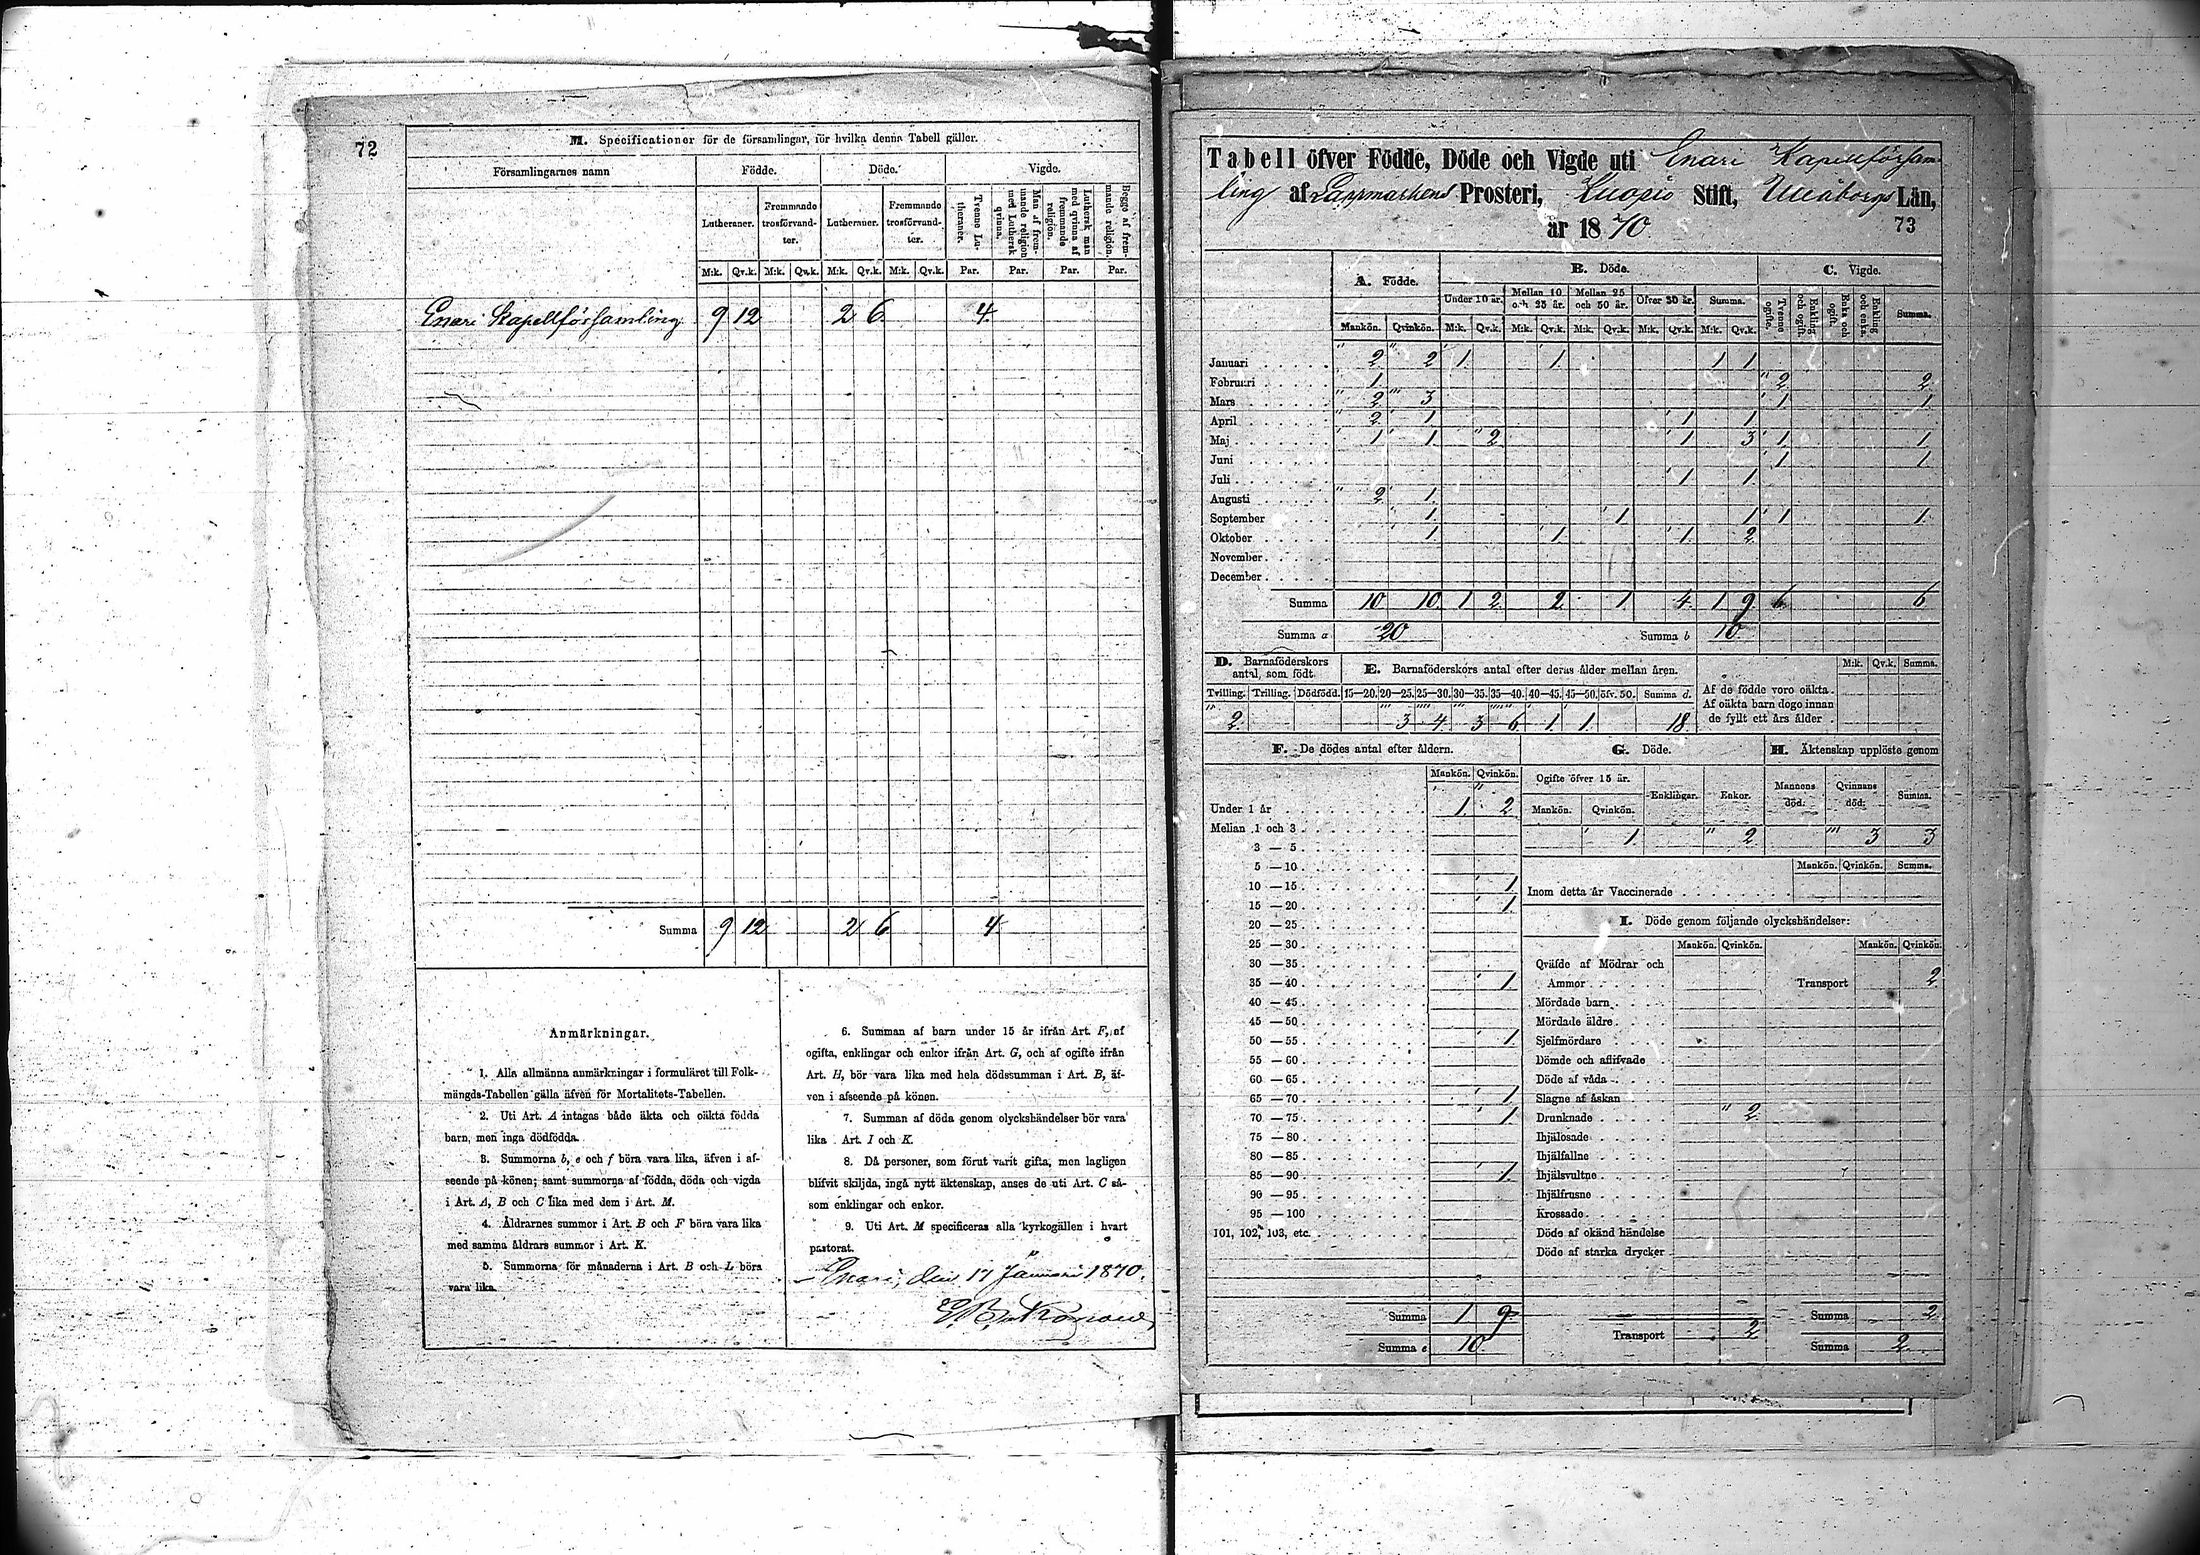 72
M. Specificationer för de församlingar, för hvilka denna Tabell gäller.
Församlingarnes namn Födde. Döde. Vigde.
Lutheraner. Fremmande trosförvandter. Lutheraner. Fremmande trosförvandter. Tvenne Lutheraner. Man af fremmande religion med Luthersk qvinna. Luthersk man med qvinna af fremmande religion. Begge af fremmande religion.
M:k. Qv.k. M:k. Qv.k. M:k. Qv.k. M:k. Qv.k. Par. Par. Par. Par.
Enari Kapellförsamling 9 12 2 6 4
Summa 9 12 2 6 4
Anmärkningar.
1. Alla allmänna anmärkningar i formuläret till Folk-
mängds-Tabellen gälla äfven för Mortalitets-Tabellen.
2. Uti Art. A intagas både äkta och oäkta födda
barn, men inga dödfödda.
3. Summorna b, e och f böra vara lika, äfven i af-
seende på könen; samt summorna af födda, döda och vigda
i Art. A, B och C lika med dem i Art. M.
4. Åldrarnes summor i Art. B och F böra vara lika
med samma åldrars summor i Art. K.
5. Summorna för månaderna i Art. B och L böra
vara lika.
6. Summan af barn under 15 år ifrån Art. F, af
ogifta, enklingar och enkor ifrån Art. G, och af ogifte ifrån
Art. H, bör vara lika med hela dödssumman i Art. B, äf-
ven i afseende på könen.
7. Summan af döda genom olyckshändelser bör vara
lika Art. I och K.
8. Då personer, som förut varit gifta, men lagligen
blifvit skiljda, ingå nytt äktenskap, anses de uti Art. C så-
som enklingar och enkor.
9. Uti Art. M specificeras alla kyrkogällen i hvart
pastorat.
Enari, den 17 Januari 1870.
Tabell öfver Födde, Döde och Vigde uti Enari Kapellförsam-
ling af Lappmarkens Prosteri, Kuopio Stift, Uleåborgs Län,
år 1870. 73
A. Födde. B. Döde. C. Vigde.
Under 10 år. Mellan 10 och 25 år. Mellan 25 och 50 år. Öfver 50 år. Summa. Tvenne ogifte. Enkling och ogift. Enka och ogift. Enkling och enka. Summa.
Mankön. Qvinkön. M:k. Qv.k. M:k. Qv.k. M:k. Qv.k. M:k. Qv.k. M:k. Qv.k.
Januari 2 2 1 1 1 1
Februari 1 2 2
Mars 2 3 1 1
April 2 1 1 1
Maj 1 1 2 1 3 1 1
Juni 1 1
Juli 1 1
Augusti 2 1
September 1 1 1 1 1
Oktober 1 1 1 2
November
December
Summa 10 10 1 2 2 1 4 1 9 6 6
Summa a 20 Summa b 10
D. Barnaföderskors antal, som födt E. Barnaföderskors antal efter deras ålder mellan åren. M:k. Qv.k. Summa.
Tvilling. Trilling. Dödfödd. 15—20. 20—25. 25—30. 30—35. 35—40. 40—45. 45—50. öfv. 50. Summa d.
2 3 4 3 6 1 1 18
Af de födde voro oäkta.
Af oäkta barn dogo innan
de fyllt ett års ålder
F. De dödes antal efter åldern. G. Döde. H. Äktenskap upplöste genom
Mankön. Qvinkön. Ogifte öfver 15 år. Enklingar. Enkor. Mannens död. Qvinnans död. Summa.
Mankön. Qvinkön.
1 2 3 3
Under 1 år 1 2
Mellan 1 och 3
3 — 5
5 — 10
10 — 15 1
15 — 20 1
20 — 25
25 — 30
30 — 35
35 — 40 1
40 — 45
45 — 50
50 — 55 1
55 — 60
60 — 65
65 — 70 1
70 — 75 1
75 — 80
80 — 85
85 — 90 1
90 — 95
95 — 100
101, 102, 103, etc.
Summa 1 9
Summa e 10
Mankön. Qvinkön. Summa.
Inom detta år Vaccinerade
I. Döde genom följande olyckshändelser:
Mankön. Qvinkön. Mankön. Qvinkön.
Qväfde af Mödrar och
Ammor Transport 2
Mördade barn
Mördade äldre
Sjelfmördare
Dömde och aflifvade
Döde af våda
Slagne af åskan
Drunknade 2
Ihjälosade
Ihjälfallne
Ihjälsvultne
Ihjälfrusne
Krossade
Döde af okänd händelse
Döde af starka drycker
Summa 2
Transport 2
Summa 2